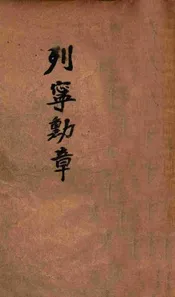 列寧勳章